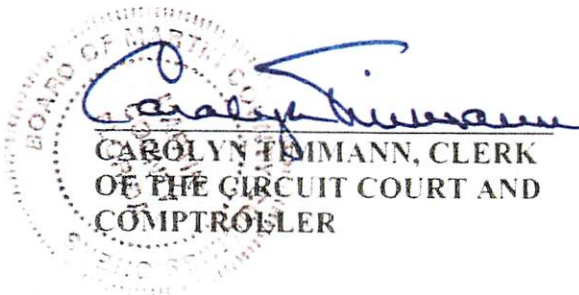 BOARD OF MARTIN COUNTY
Carolyn Timmann
CAROLYN TIMMANN, CLERK
OF THE CIRCUIT COURT AND
COMPTROLLER